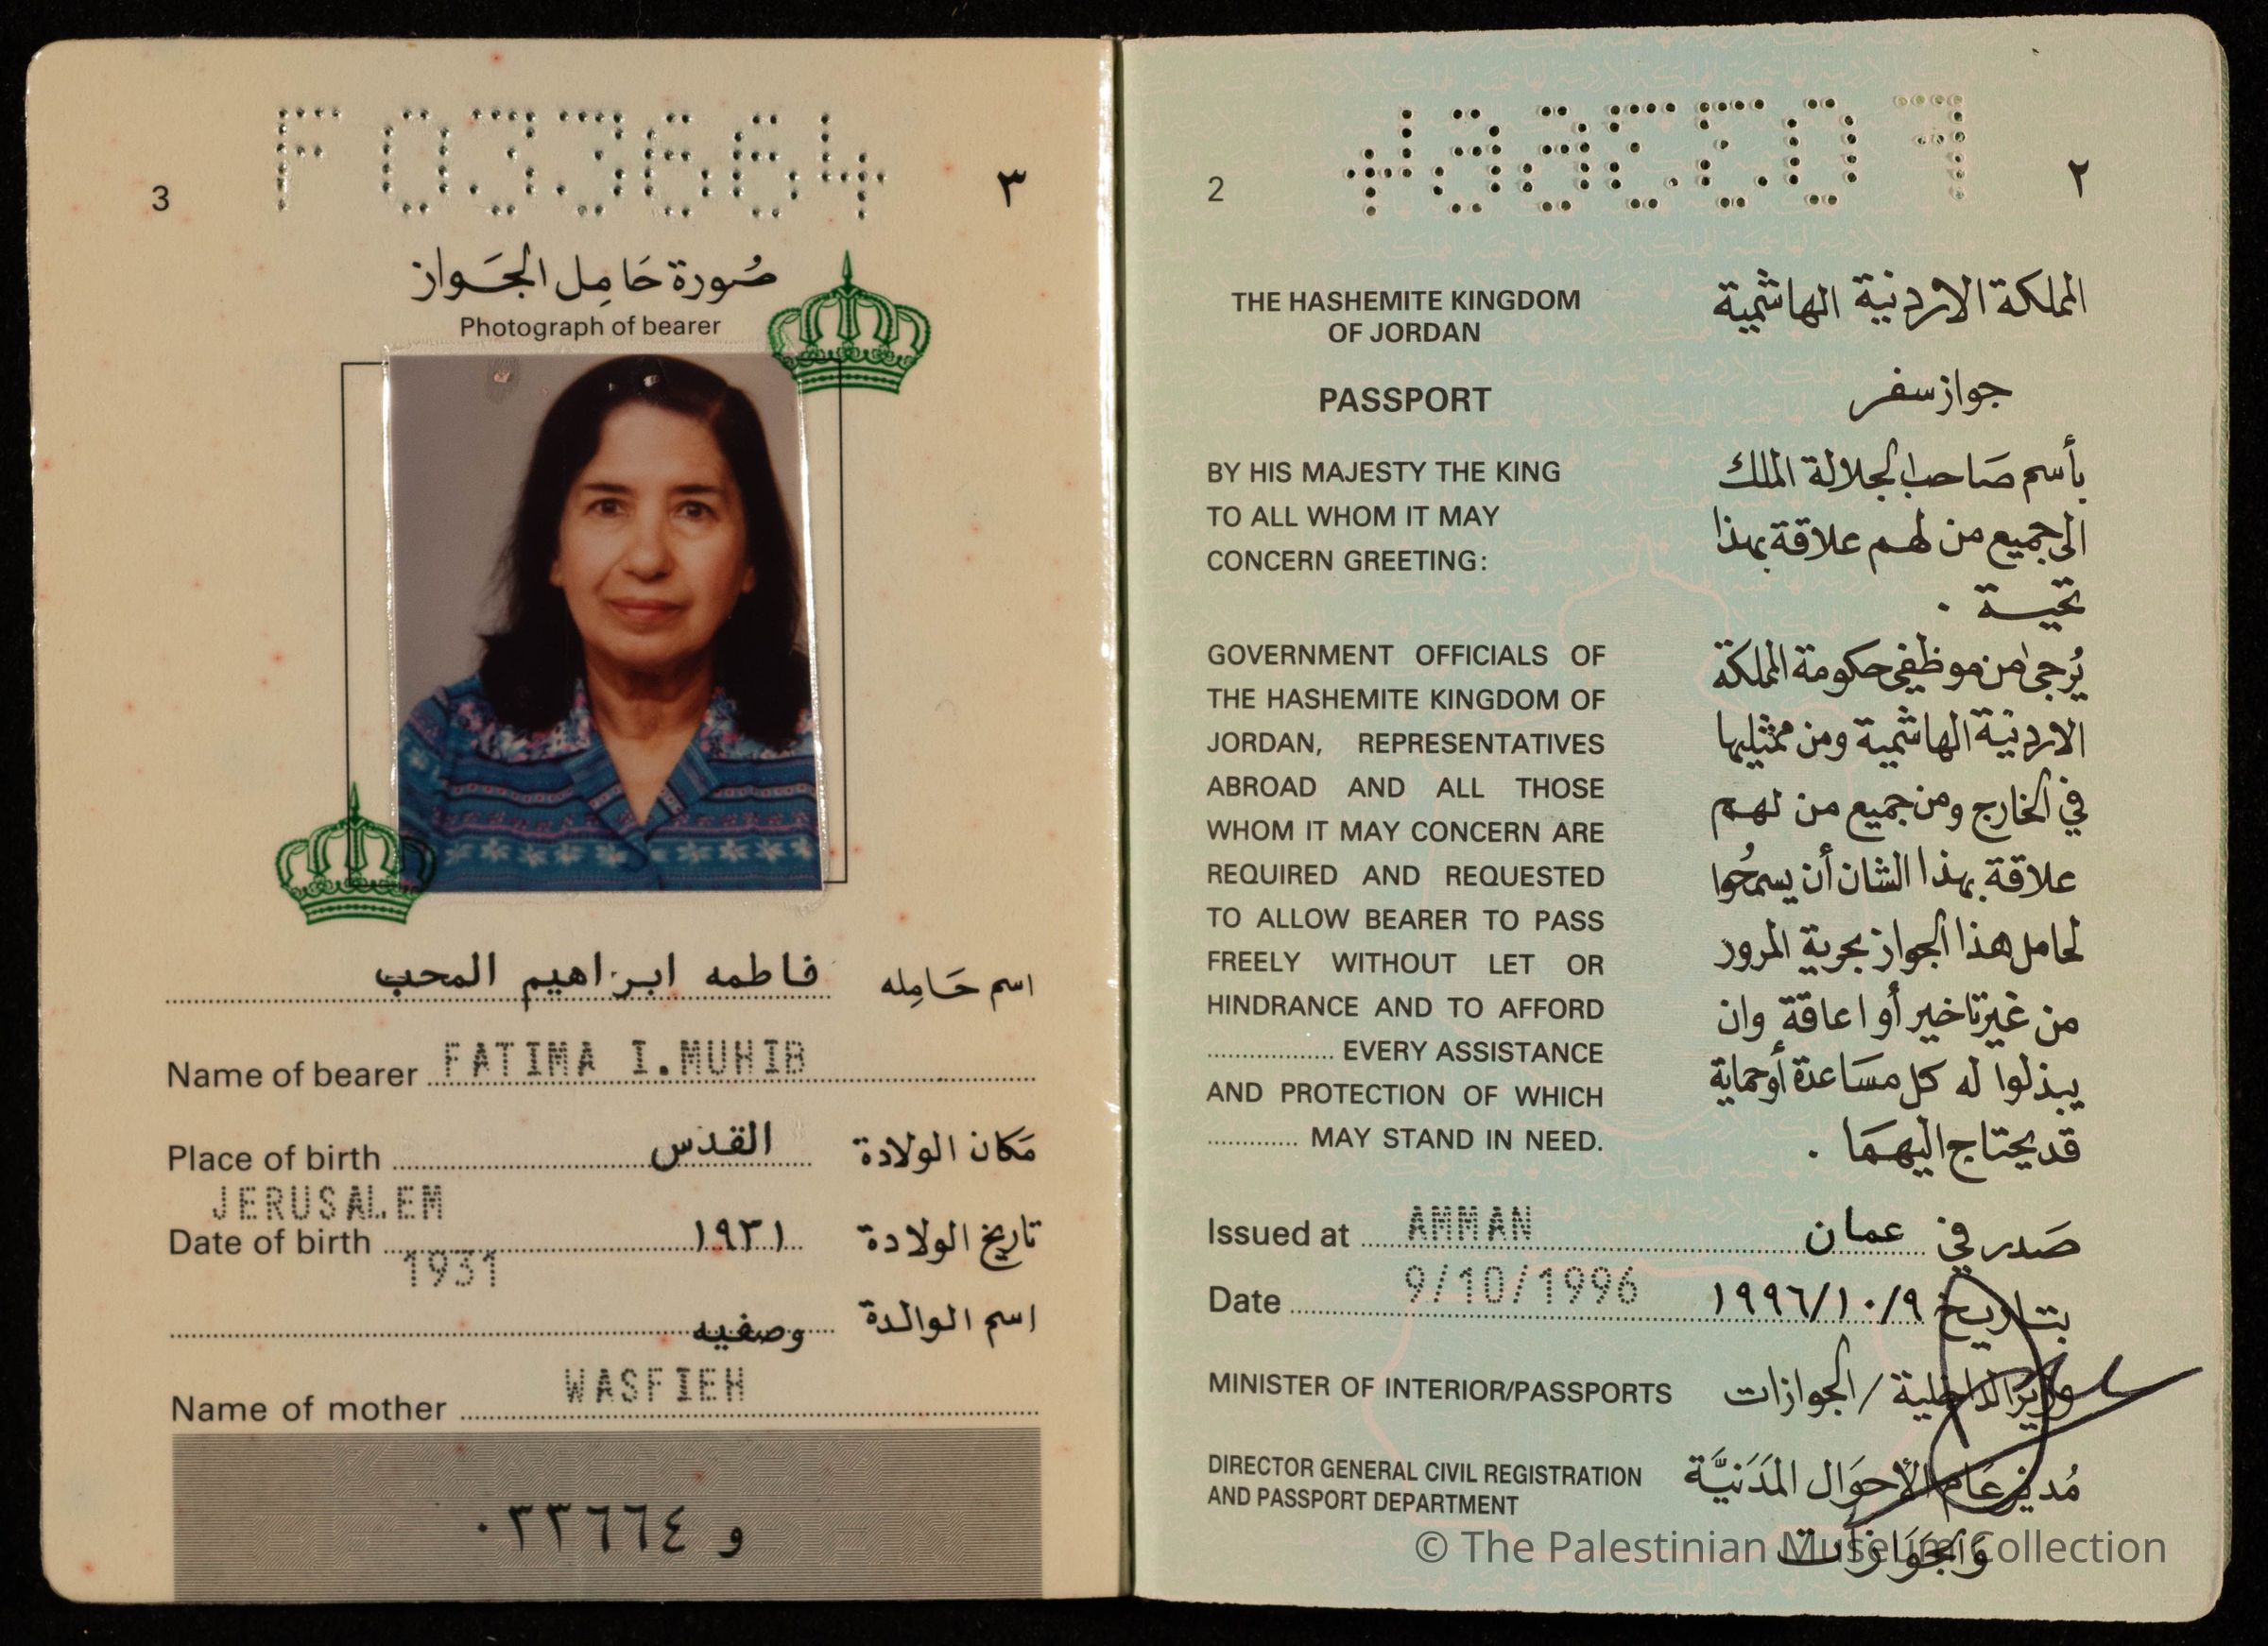 F 033664
3
٣
صُورة حَامِل الجَواز
Photograph of bearer
اسم حَامِله فاطمه ابراهيم المحب
Name of bearer FATIMA I.MUHIB
Place of birth القدس مَكان الولادة
JERUSALEM
Date of birth ١٩٣١ تاريخ الولادة
1931
اسم الوالدة وصفيه
WASFIEH
Name of mother
و ٠٣٣٦٦٤
F 033664
2
٢
THE HASHEMITE KINGDOM
OF JORDAN
المملكة الاردنية الهاشمية
PASSPORT
جواز سفر
BY HIS MAJESTY THE KING
TO ALL WHOM IT MAY
CONCERN GREETING:
GOVERNMENT OFFICIALS OF
THE HASHEMITE KINGDOM OF
JORDAN, REPRESENTATIVES
ABROAD AND ALL THOSE
WHOM IT MAY CONCERN ARE
REQUIRED AND REQUESTED
TO ALLOW BEARER TO PASS
FREELY WITHOUT LET OR
HINDRANCE AND TO AFFORD
.................. EVERY ASSISTANCE
AND PROTECTION OF WHICH
............. MAY STAND IN NEED.
بأسم صَاحب الجلالة الملك
الى جميع من لهم علاقة بهذا
تحية .
يُرجى من موظفي حكومة المملكة
الاردنية الهاشمية ومن ممثليها
في الخارج ومن جميع من لهم
علاقة بهذا الشان أن يسمحُوا
لحامل هذا الجواز بحرية المرور
من غير تاخير أو اعاقة وان
يبذلوا له كل مسَاعدة أو حماية
قد يحتاج اليهمَا .
Issued at AMMAN عمان صَدر في
Date 9/10/1996 ١٩٩٦/١٠/٩ بتاريخ
MINISTER OF INTERIOR/PASSPORTS وزير الداخلية / الجوازات
DIRECTOR GENERAL CIVIL REGISTRATION
AND PASSPORT DEPARTMENT
مُدير عَام الأحوَال المَدَنيَّة
وَالجَوَازات
© The Palestinian Museum Collection